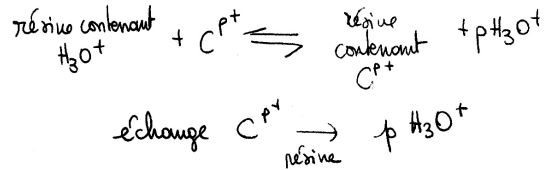 résine contenant H3O+ + C^p+ ⇌ résine contenant C^p+ + pH3O+
échange C^p+ →résine p H3O+